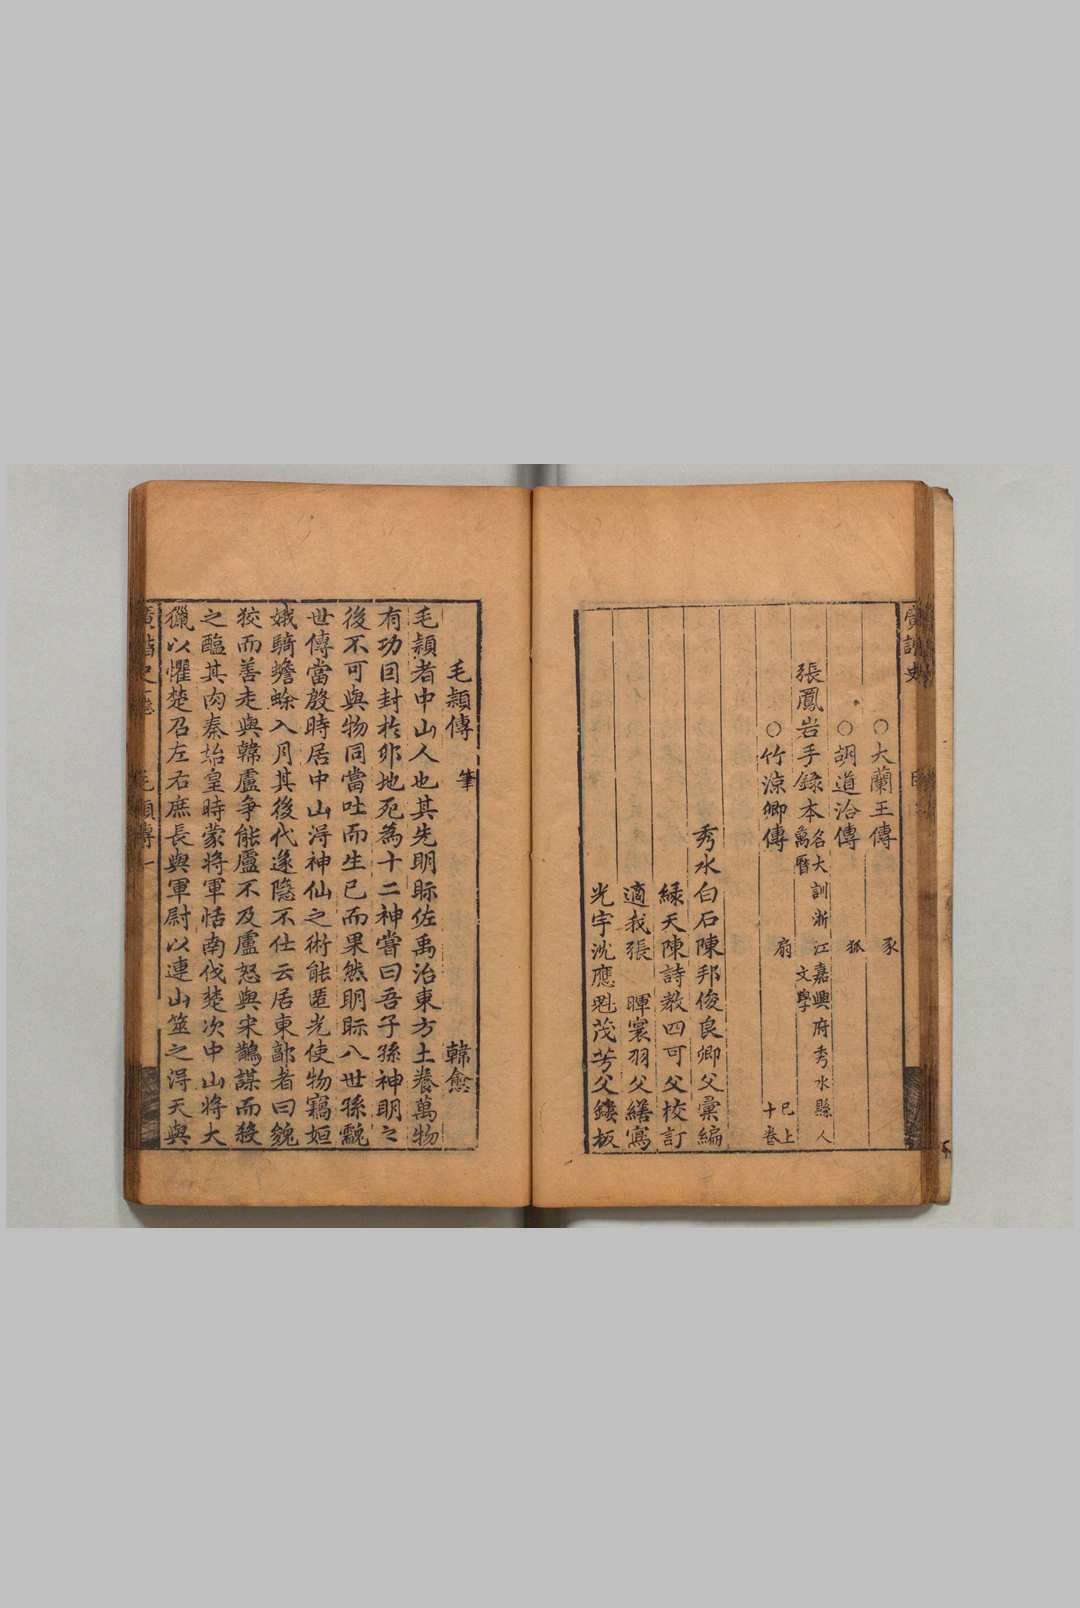 ○大蘭王傳 豕
○胡道洽傳 狐
張鳳岩手錄本 名大訓浙江嘉興府秀水縣人萬曆文學
○竹涼卿傳 扇 已上十卷
秀水白石陳邦俊良卿父彙編
綠天陳詩教四可父校訂
適我張 暉寰羽父繕寫
光宇沈應魁茂芳父鏤板
毛穎傳 筆 韓愈
毛穎者中山人也其先明眎佐禹治東方土養萬物
有功因封於卯地死為十二神嘗曰吾子孫神明之
後不可與物同當吐而生已而果然明眎八世孫䨲
世傳當殷時居中山淂神仙之術能匿光使物竊姮
娥騎蟾蜍入月其後代遂隱不仕云居東郭者曰㕙
狡而善走與韓盧爭能盧不及盧怒與宋鵲謀而殺
之醢其肉秦始皇時蒙將軍恬南伐楚次中山將大
獵以懼楚召左右庶長與軍尉以連山筮之淂天與